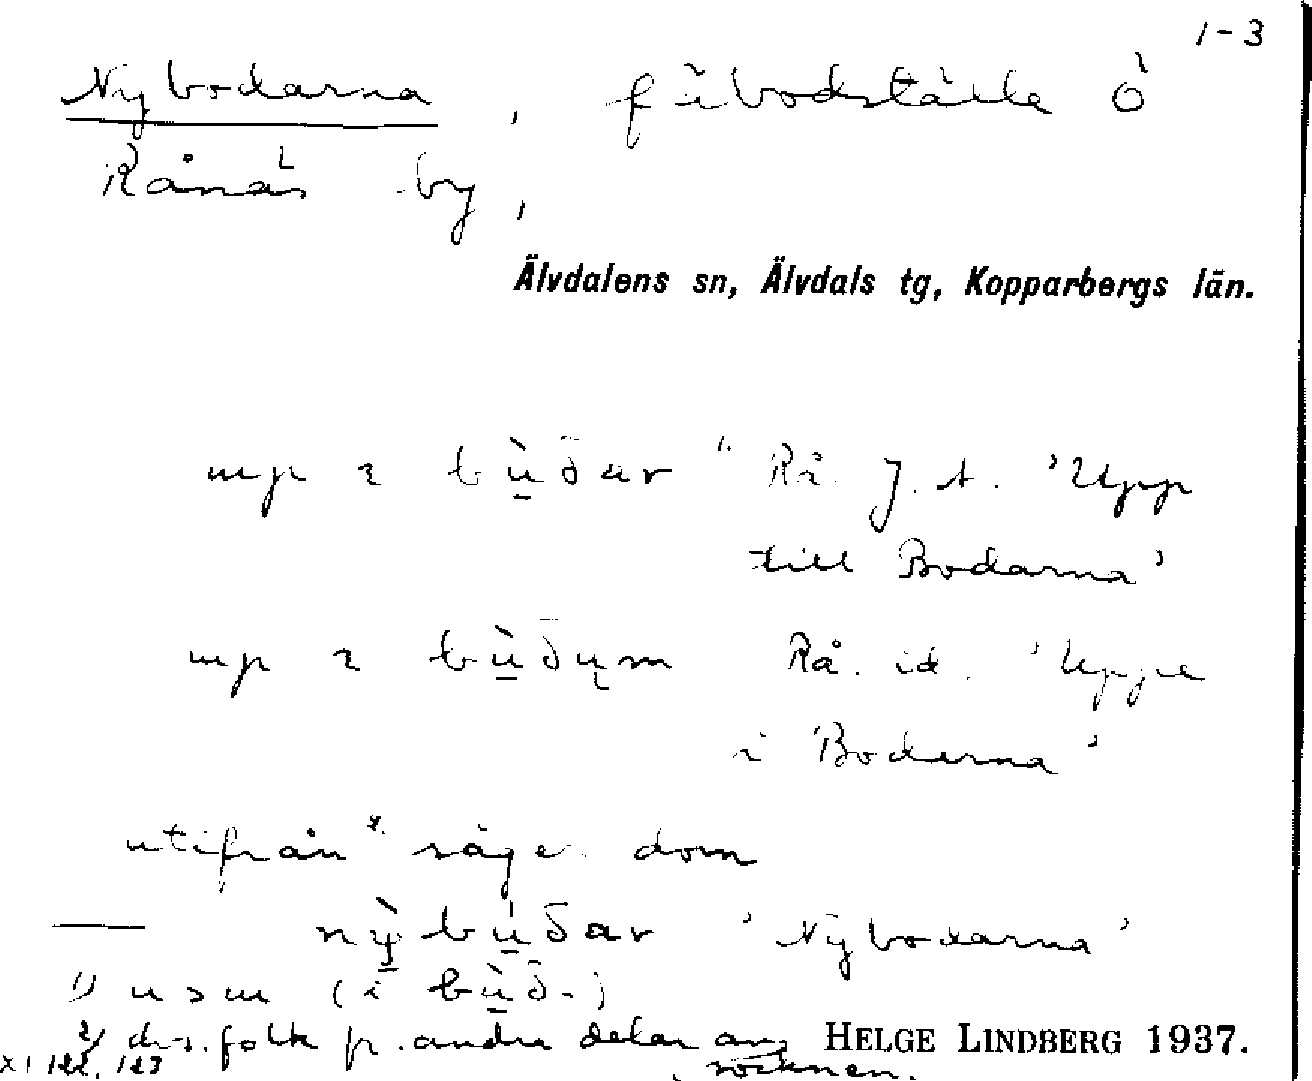 1-3
Nybodarna, fäbodställe ö
Rånäs by,
Älvdalens sn, Älvdals tg, Kopparbergs län.
upp ı bù̱ðar ¹⁾ Rå. J. A. 'Upp
till Bodarna'
upp ı bù̱ðųm Rå. id. 'Uppe
i Boderna'
utifrån ²⁾ säger dom
— nỳ̱bù̱ðar 'Nybodarna'
1) u som (i bù̱ð-)
2) d.v.s. folk fr. andra delar av
socknen.
HELGE LINDBERG 1937.
XI 122, 123